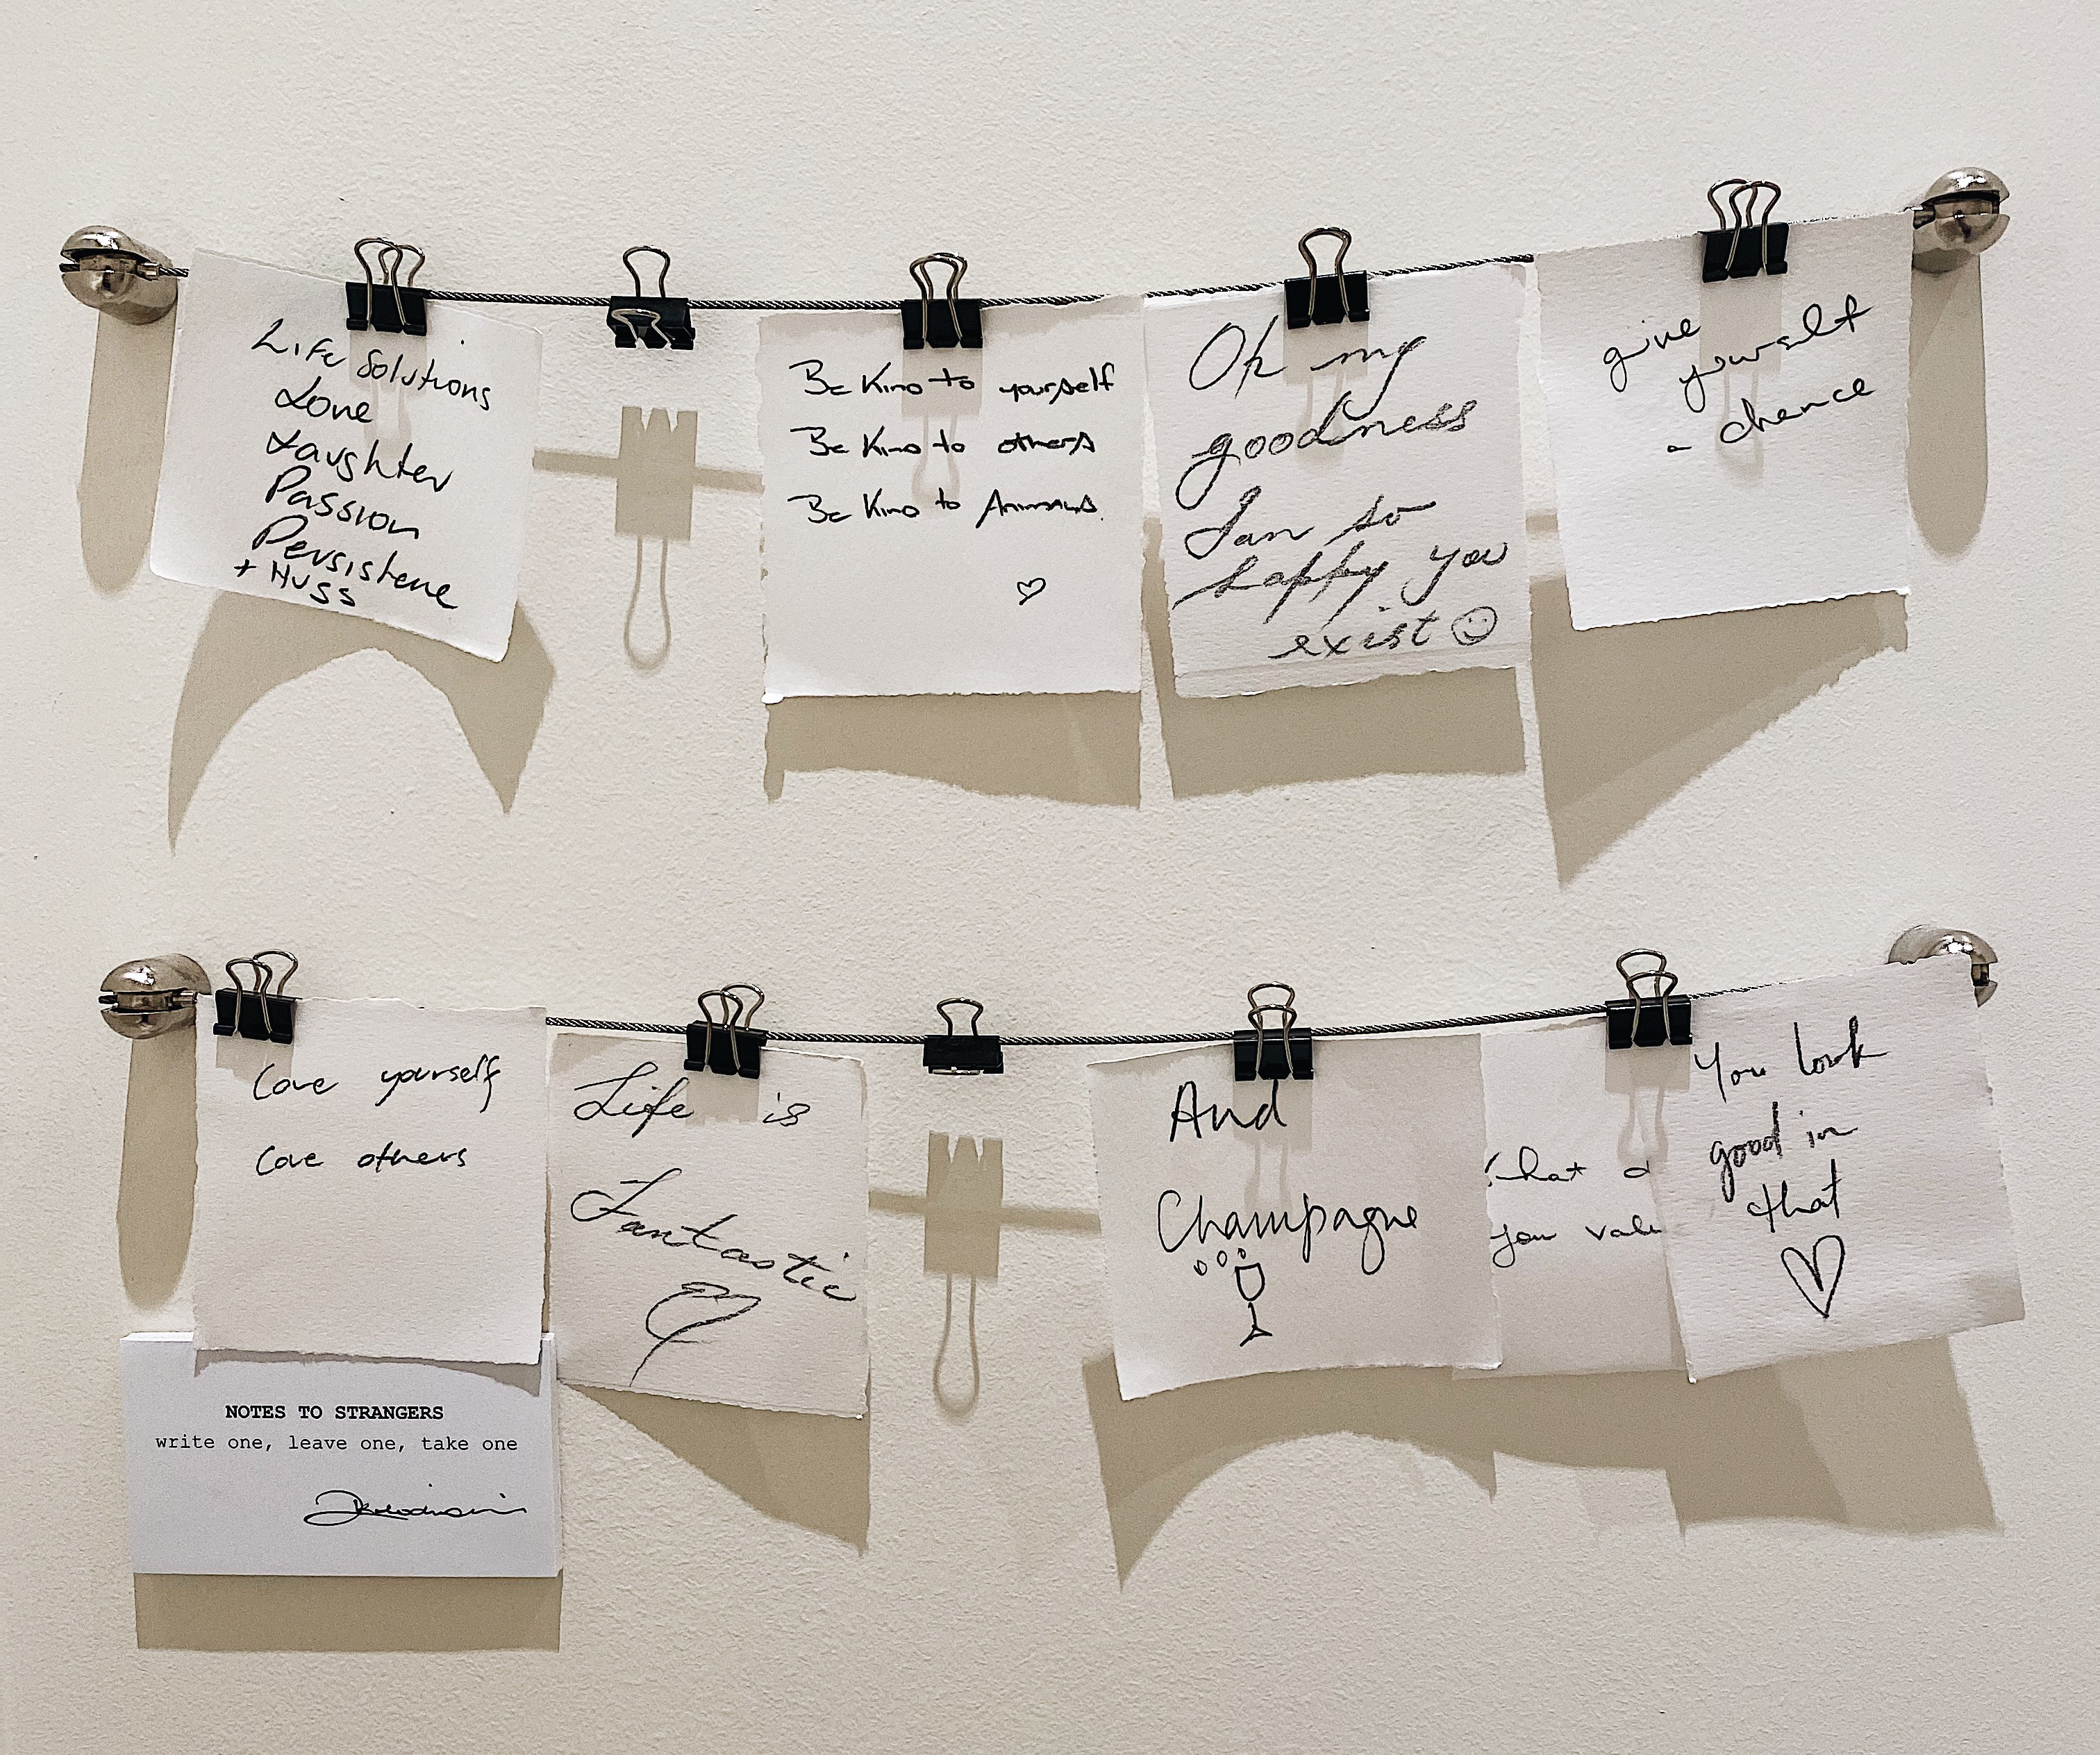 Life Solutions
Love
Laughter
Passion
Persistene
+ Huss
Be Kind to yourself
Be Kind to others
Be Kind to Animals.
Oh my
goodness
I am so
happy you
exist
give
yourself
a chance
Love yourself
Love others
Life is
Fantastic
And
Champagne
you valu
You look
good in
that
NOTES TO STRANGERS
write one, leave one, take one